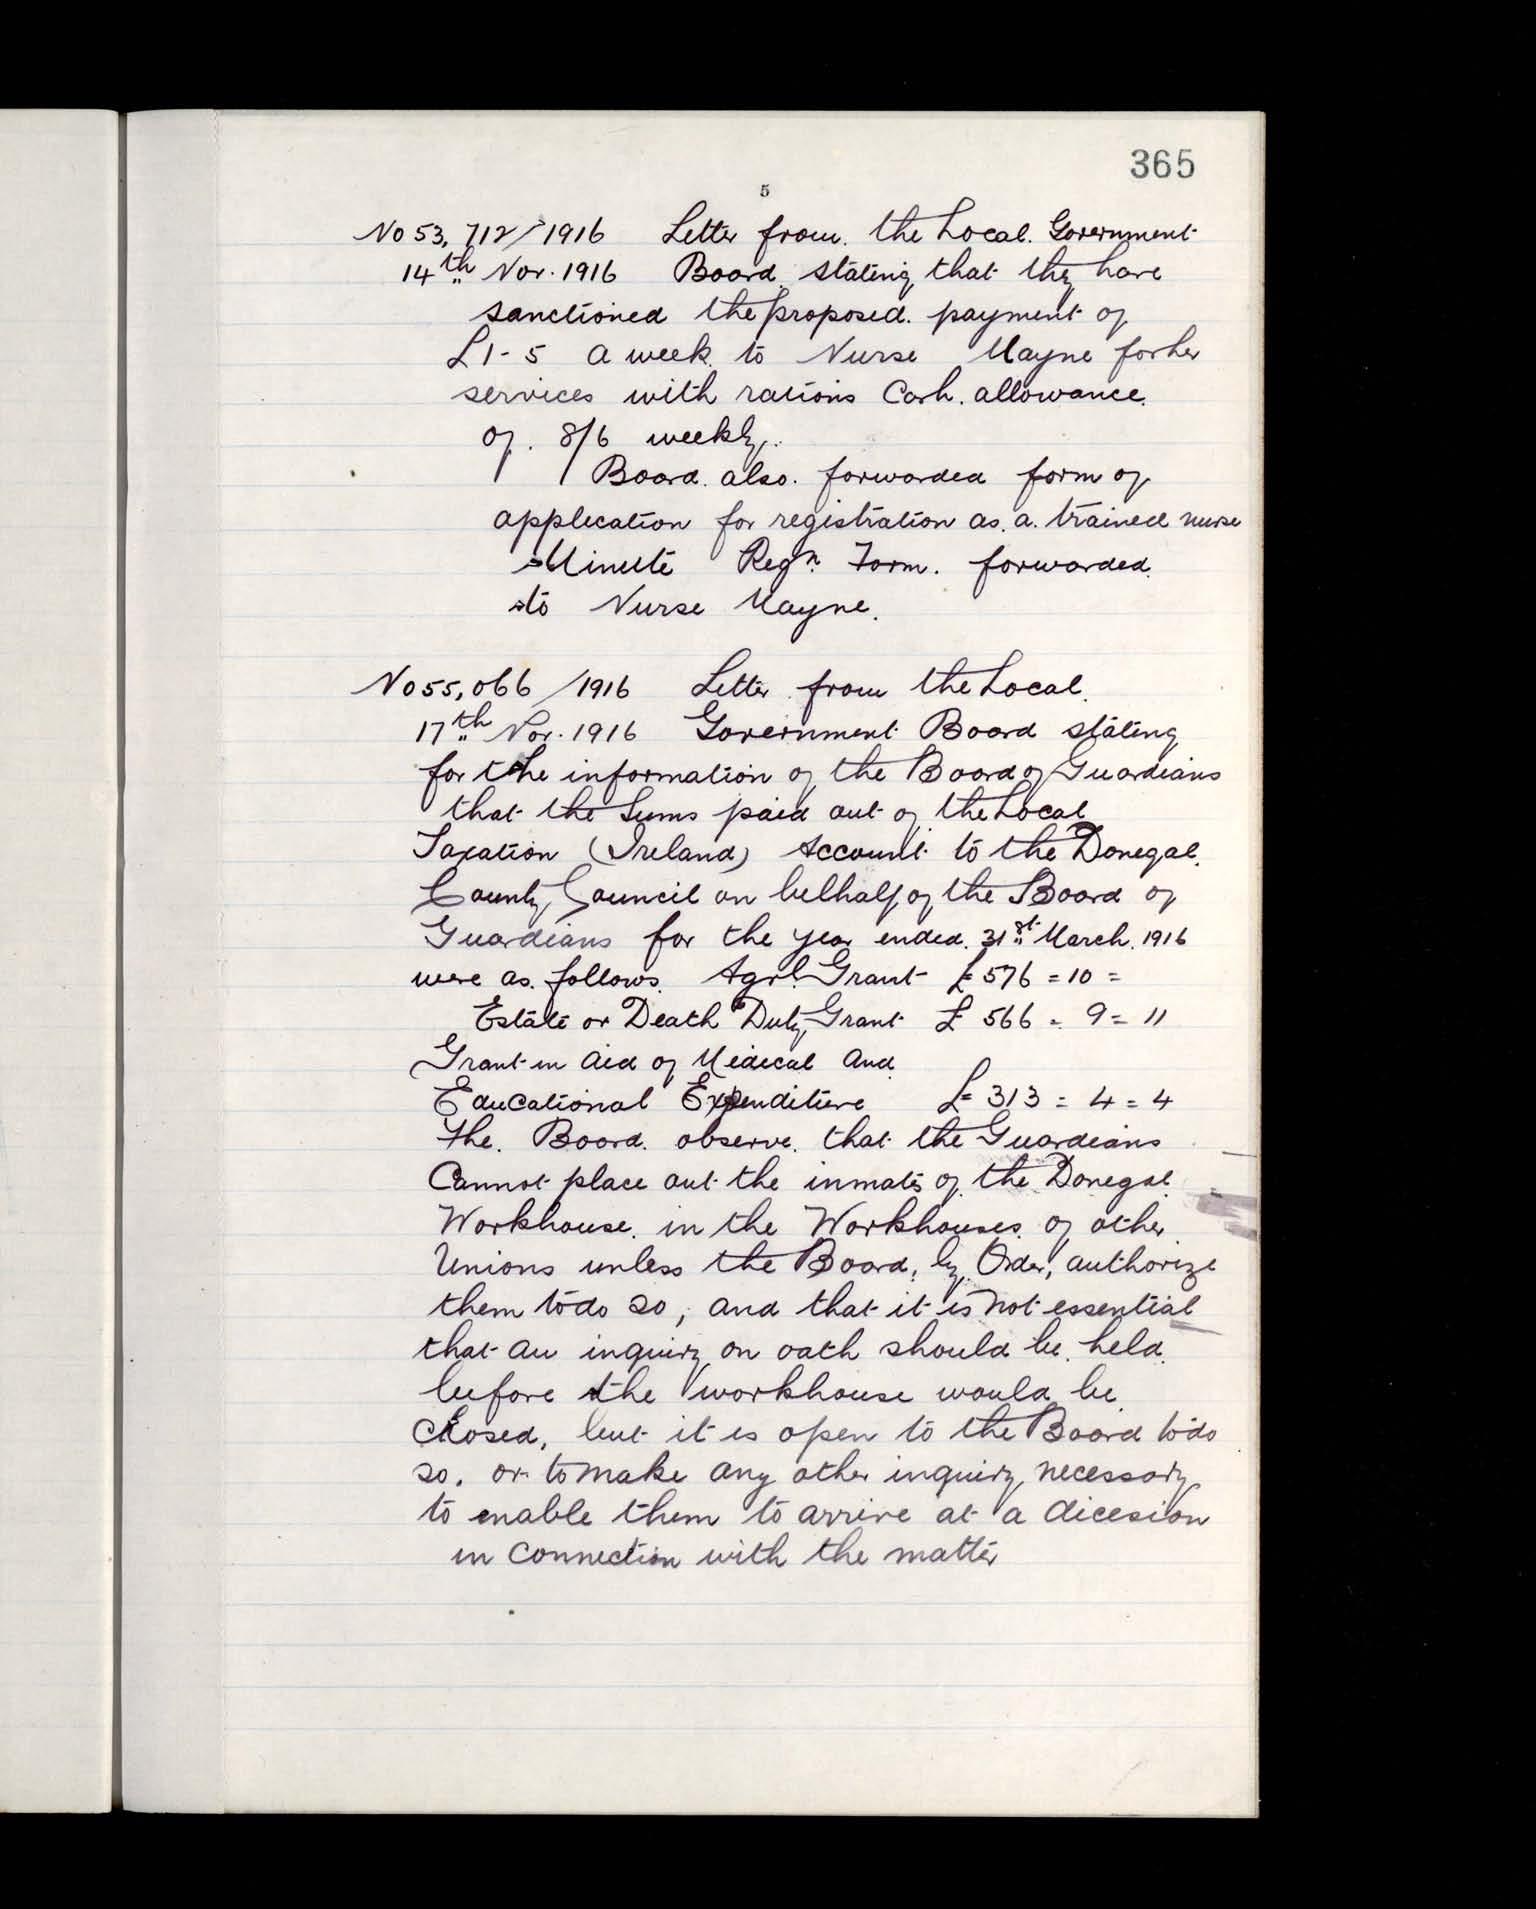 365
5
No 53,712/1916 Letter from the Local Government
14th Nov. 1916 Board stating that they have
sanctioned the proposed payment of
£1-5 a week to Nurse Mayne for her
services with rations Cash allowance
of 8/6 weekly.
Board also forwarded form of
application for registration as a trained nurse
Minute Regn. Form. forwarded
to Nurse Mayne.
No 55,066/1916 Letter from the Local
17th Nov. 1916 Government Board stating
for the information of the Board of Guardians
that the Sums paid out of the Local
Taxation (Ireland) Account to the Donegal
County Council on belhalf of the Board of
Guardians for the year ended 31st March 1916
were as follows. Agrl. Grant £576=10=
Estate or Death Duty Grant £566=9=11
Grant in aid of Medical and
Educational Expenditure £313=4=4
The Board observe that the Guardians
Cannot place out the inmates of the Donegal
Workhouse in the Workhouses of other
Unions unless the Board, by Order, authorize
them to do so, and that it is not essential
that an inquiry on oath should be held
before the workhouse would be
closed, but it is open to the Board to do
so, or to make any other inquiry necessary
to enable them to arrive at a dicesion
in connection with the matter